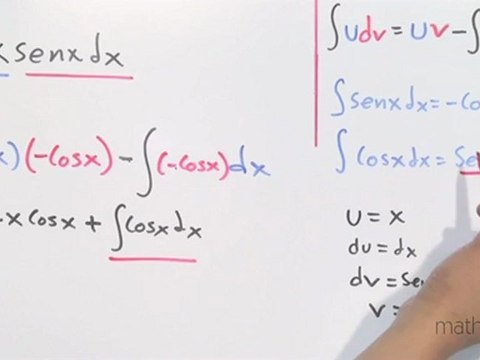 senx dx
x)(-Cosx) - ∫(-Cosx)dx
x Cosx + ∫Cosx dx
∫Udv = UV - ∫
∫senxdx = -Co
∫Cosxdx = Se
U = x
du = dx
dv = Se
v =
math